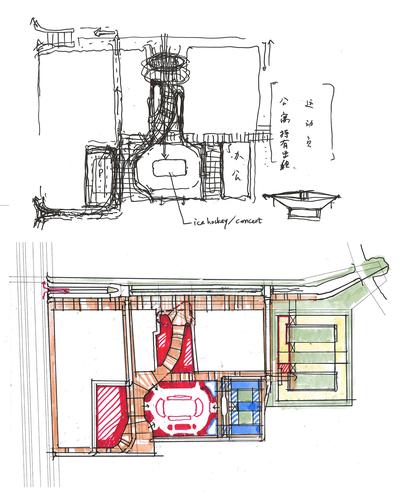 运动员
公寓持有出租
办公
P
ice hockey/concert